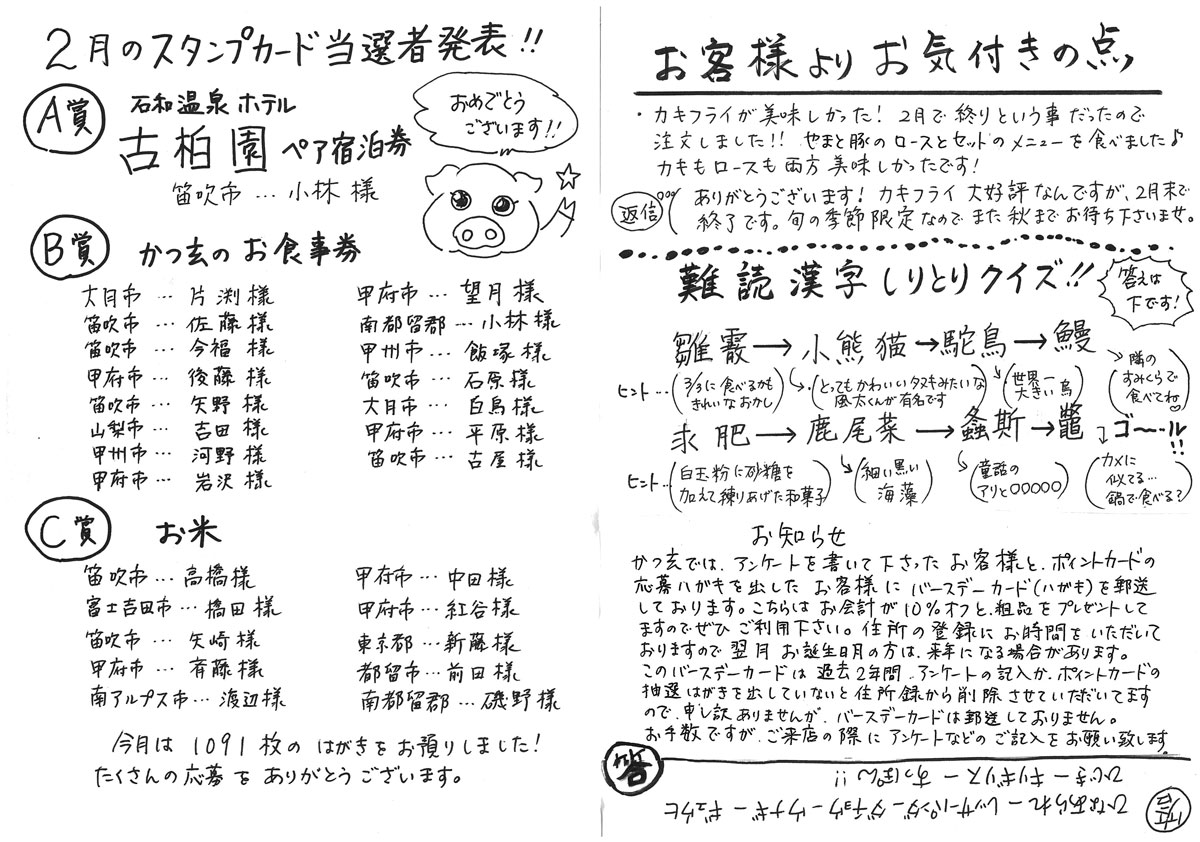 2月のスタンプカード当選者発表!!
A賞
石和温泉ホテル
古柏園 ペア宿泊券
笛吹市…小林様
おめでとう
ございます!!
B賞 かつ玄のお食事券
大月市…片渕様
笛吹市…佐藤様
笛吹市…今福様
甲府市…後藤様
笛吹市…矢野様
山梨市…吉田様
甲州市…河野様
甲府市…岩沢様
甲府市…望月様
南都留郡…小林様
甲州市…飯塚様
笛吹市…石原様
大月市…白鳥様
甲府市…平原様
笛吹市…古屋様
C賞 お米
笛吹市…高橋様
富士吉田市…橋田様
笛吹市…矢崎様
甲府市…斉藤様
南アルプス市…渡辺様
甲府市…中田様
甲府市…紅谷様
東京都…新藤様
都留市…前田様
南都留郡…磯野様
今月は1091枚のはがきをお預りしました!
たくさんの応募をありがとうございます。
お客様よりお気付きの点
・カキフライが美味しかった!2月で終りという事だったので
注文しました!!やまと豚のロースとセットのメニューを食べました♪
カキもロースも両方美味しかったです!
返信
ありがとうございます!カキフライ大好評なんですが、2月末で
終了です。旬の季節限定なのでまた秋までお待ち下さいませ。
難読漢字しりとりクイズ!!
答えは
下です!
雛霰→小熊猫→駝鳥→鰻
ヒント…(3/3に食べるかも きれいなおかし)
(とってもかわいいタヌキみたいな 風太くんが有名です)
(世界一 大きい鳥)
(隣の すみくらで 食べてね♡)
求肥→鹿尾菜→螽斯→鼈 ゴ〜ル!!
ヒント…(白玉粉に砂糖を 加えて練りあげた和菓子)
(細い黒い 海藻)
(童話の アリと○○○○○)
(カメに 似てる… 鍋で食べる?)
お知らせ
かつ玄では、アンケートを書いて下さったお客様と、ポイントカードの
応募ハガキを出したお客様にバースデーカード(ハガキ)を郵送
しております。こちらはお会計が10%オフと、粗品をプレゼントして
ますのでぜひご利用下さい。住所の登録にお時間をいただいて
おりますので翌月お誕生日の方は、来年になる場合があります。
このバースデーカードは過去2年間、アンケートの記入か、ポイントカードの
抽選はがきを出していないと住所録から削除させていただいてます
ので、申し訳ありませんが、バースデーカードは郵送しておりません。
お手数ですが、ご来店の際にアンケートなどのご記入をお願い致します。
答
ひなあられーレッサーパンダーダチョウーウナギーギュウヒ
ひじきーキリギリスーすっぽん!!